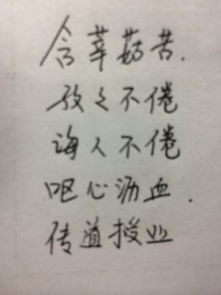 含莘茹苦.
孜孜不倦
诲人不倦
呕心沥血.
传道授业